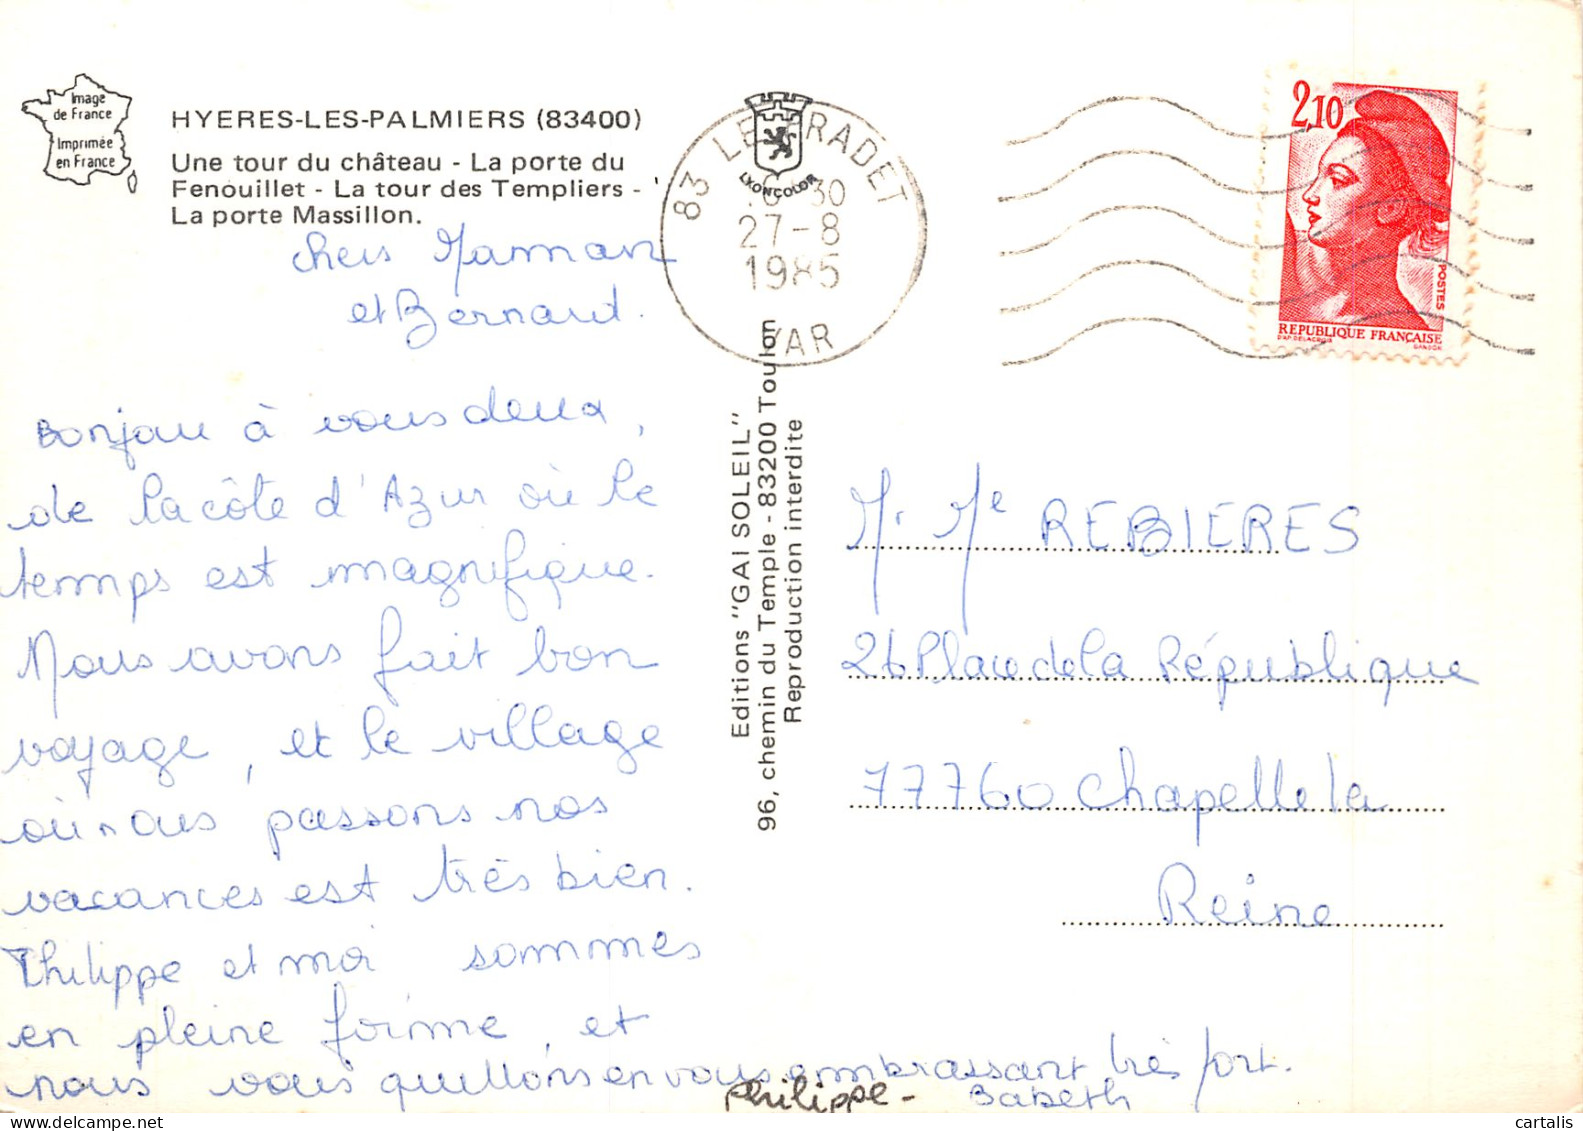 Image
de France
Imprimée
en France
HYERES-LES-PALMIERS (83400)
Une tour du château - La porte du
Fenouillet - La tour des Templiers -
La porte Massillon.
chers Maman
et Bernard.
Bonjour à vous deux,
de la côte d'Azur où le
temps est magnifique.
Nous avons fait bon
voyage, et le village
où nous passons nos
vacances est très bien.
Philippe et moi sommes
en pleine forme, et
nous vous quittons en vous embrassant très fort.
Philippe - Babeth
83 LE PRADET
27-8
1985
VAR
LYONCOLOR
Editions "GAI SOLEIL"
96, chemin du Temple - 83200 Toulon
Reproduction interdite
2,10
POSTES
REPUBLIQUE FRANÇAISE
D'AP. DELACROIX
GANDON
M. Me REBIERES
26 Place de la République
77760 Chapelle la
Reine
cartalis